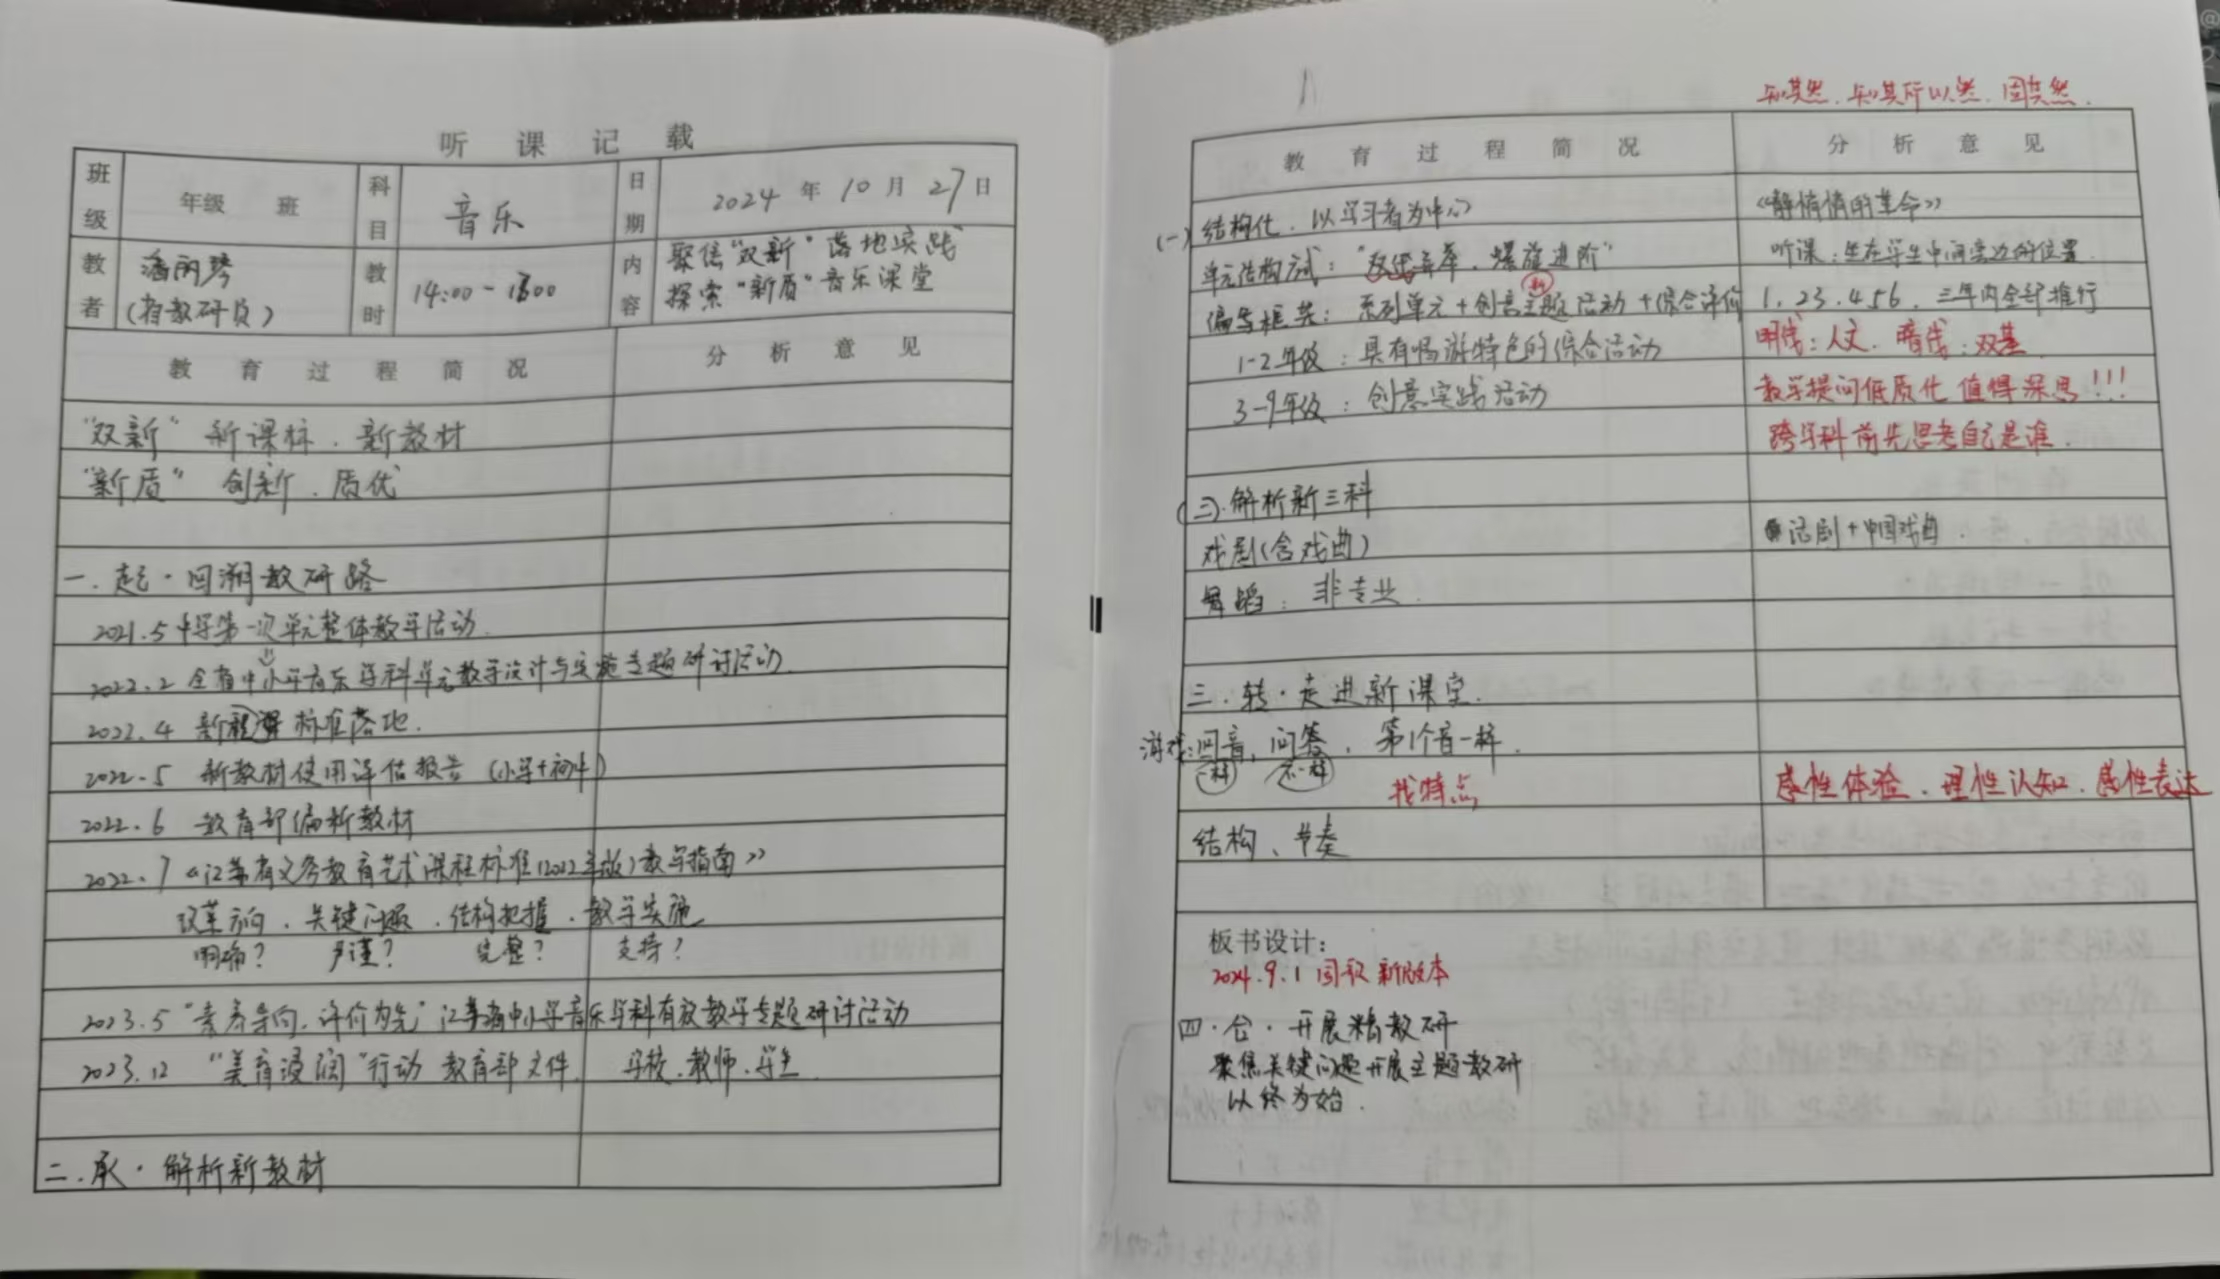 听课记载
班级 年级 班 科目 音乐 日期 2024年10月27日
教者 潘丽琴（省教研员） 教时 14:00-1600 内容 聚焦“双新”落地实践 探索“新质”音乐课堂
教育过程简况 分析意见
“双新” 新课标、新教材
“新质” 创新、质优
一、起·回溯教研路
2021.5 中学第一次单元整体教学活动.
2022.2 全省中小学音乐学科单元教学设计与实施专题研讨活动.
2022.4 新课标准落地.
2022.5 新教材使用评估报告（小学+初中）
2022.6 教育部编新教材
2022.7《江苏省义务教育艺术课程标准（2022年版）教学指南》
改革方向、关键问题、结构把握、教学实施
明确？ 严谨？ 完整？ 支持？
2023.5“素养导向，评价为先”江苏省中小学音乐学科有效教学专题研讨活动
2023.12 “美育浸润”行动 教育部文件 学校、教师、学生
二、承·解析新教材
知其然、知其所以然、固其然.
教育过程简况 分析意见
(一) 结构化、以学习者为中心
《静悄悄的革命》
单元结构方式：“ 螺旋进阶”
听课：坐在学生中间旁边的位置.
编写框架：系列单元+创意主题活动+综合评价
1.23.456. 三年内全部推行
1-2年级：具有唱游特色的综合活动
明线：人文. 暗线：双基.
3-9年级：创意实践活动
教学提问低质化 值得深思!!!
跨学科前先思考自己是谁.
(三).解析新三科
戏剧(含戏曲)
话剧+中国戏曲.
舞蹈：非专业.
三、转·走进新课堂.
游戏：同音，问答，第1个音一样.
一样 不一样 找特点
感性体验、理性认知、感性表达
结构、节奏
板书设计：
2024.9.1 国 新版本
四·合·开展精教研
聚焦关键问题开展主题教研
以终为始.